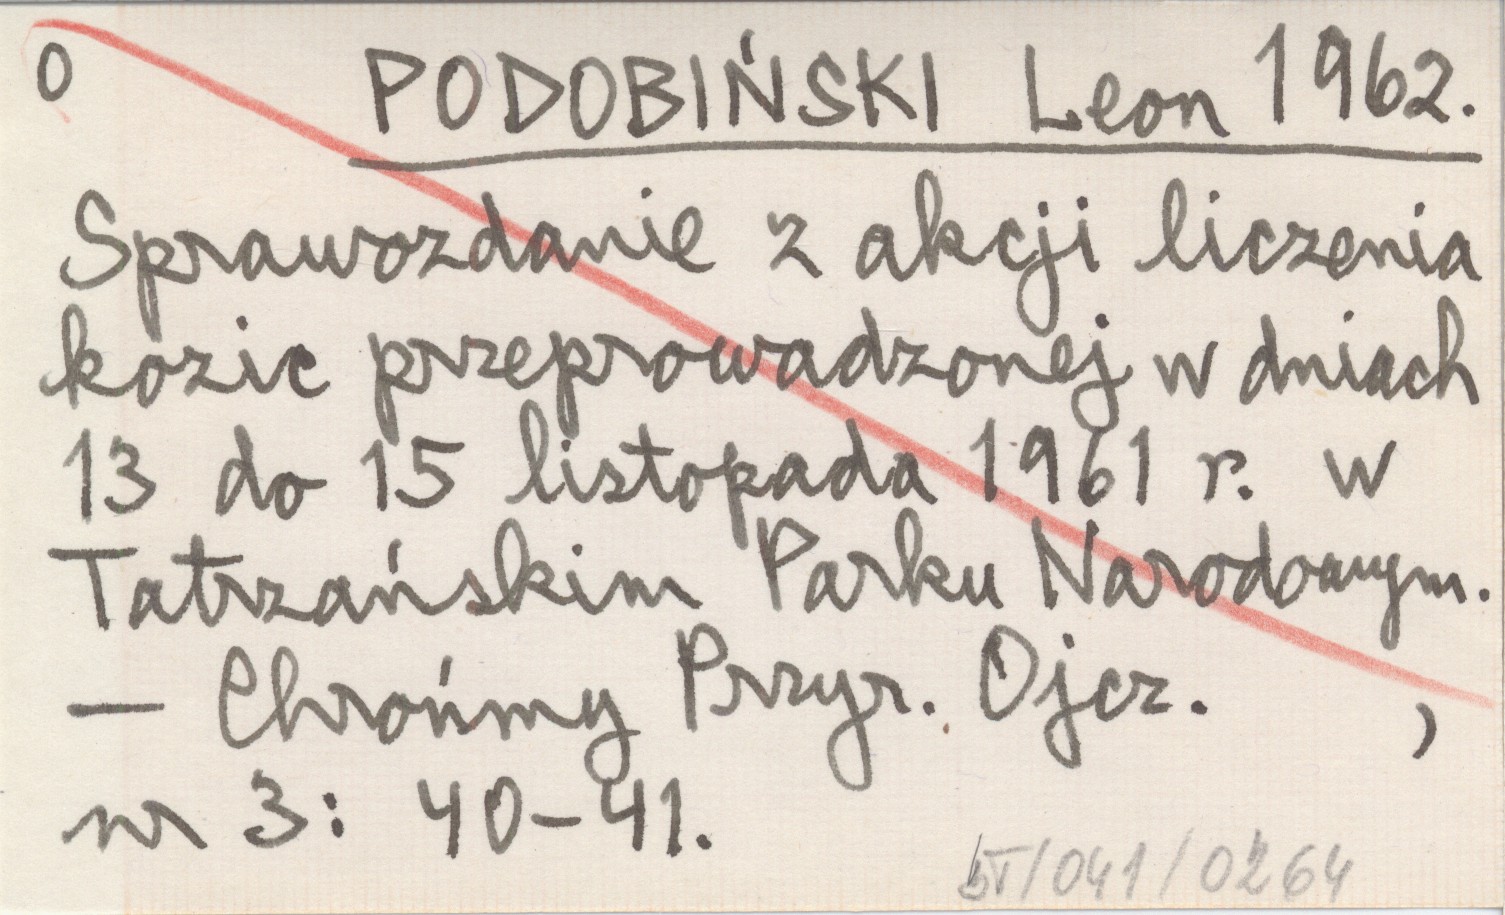 O PODOBIŃSKI Leon 1962.
Sprawozdanie z akcji liczenia
kozic przeprowadzonej w dniach
13 do 15 listopada 1961 r. w
Tatrzańskim Parku Narodowym.
— Chrońmy Przyr. Ojcz. ,
nr 3: 40-41.
/041/0264